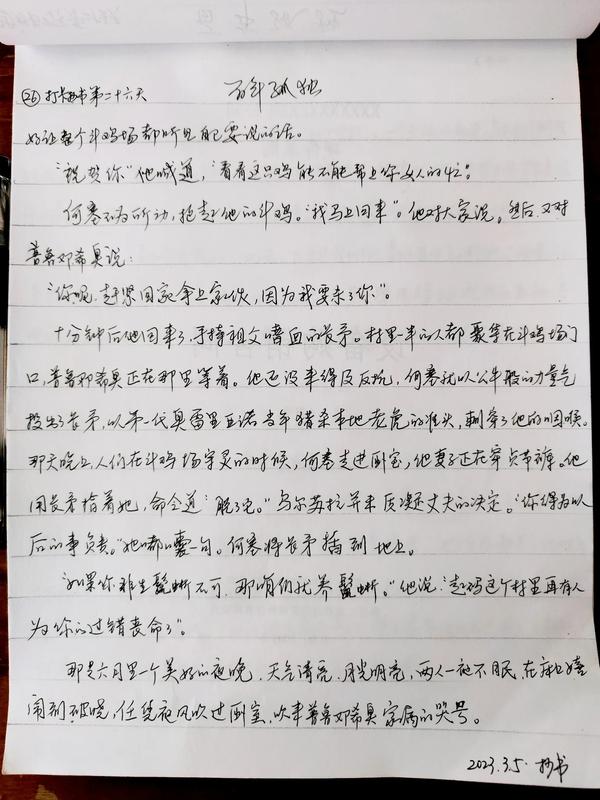 百年孤独
(26) 打卡抄书第二十六天
好让整个斗鸡场都听见自己要说的话。
“祝贺你”他喊道，“看看这只鸡能不能帮上你女人的忙。”
何塞不为所动，抱起他的斗鸡。“我马上回来”。他对大家说。然后又对
普鲁邓希奥说：
“你呢，赶紧回家拿上家伙，因为我要杀了你”。
十分钟后他回来了，手持祖父嗜血的长矛。村里一半的人都聚集在斗鸡场门
口，普鲁邓希奥正在那里等着。他还没来得及反抗，何塞就以公牛般的力量气
投出了长矛，以第一代奥雷里亚诺当年猎杀本地老虎的准头，刺穿了他的咽喉。
那天晚上，人们在斗鸡场守灵的时候，何塞走进卧室，他妻子正在穿贞节裤。他
用长矛指着她，命令道：“脱了它。”乌尔苏拉并未反对丈夫的决定。“你得为以
后的事负责。”她嘟囔一句。何塞将长矛插到地上。
“如果你非生鬣蜥不可，那咱们就养鬣蜥。”他说：“起码这个村里再有人
为你的过错丧命了”。
那是六月里一个美好的夜晚，天气清亮，月光明亮，两人一夜不眠，在床上嬉
闹到破晓，任凭夜风吹过卧室，吹来普鲁邓希奥家病的哭号。
2023.3.5·抄书